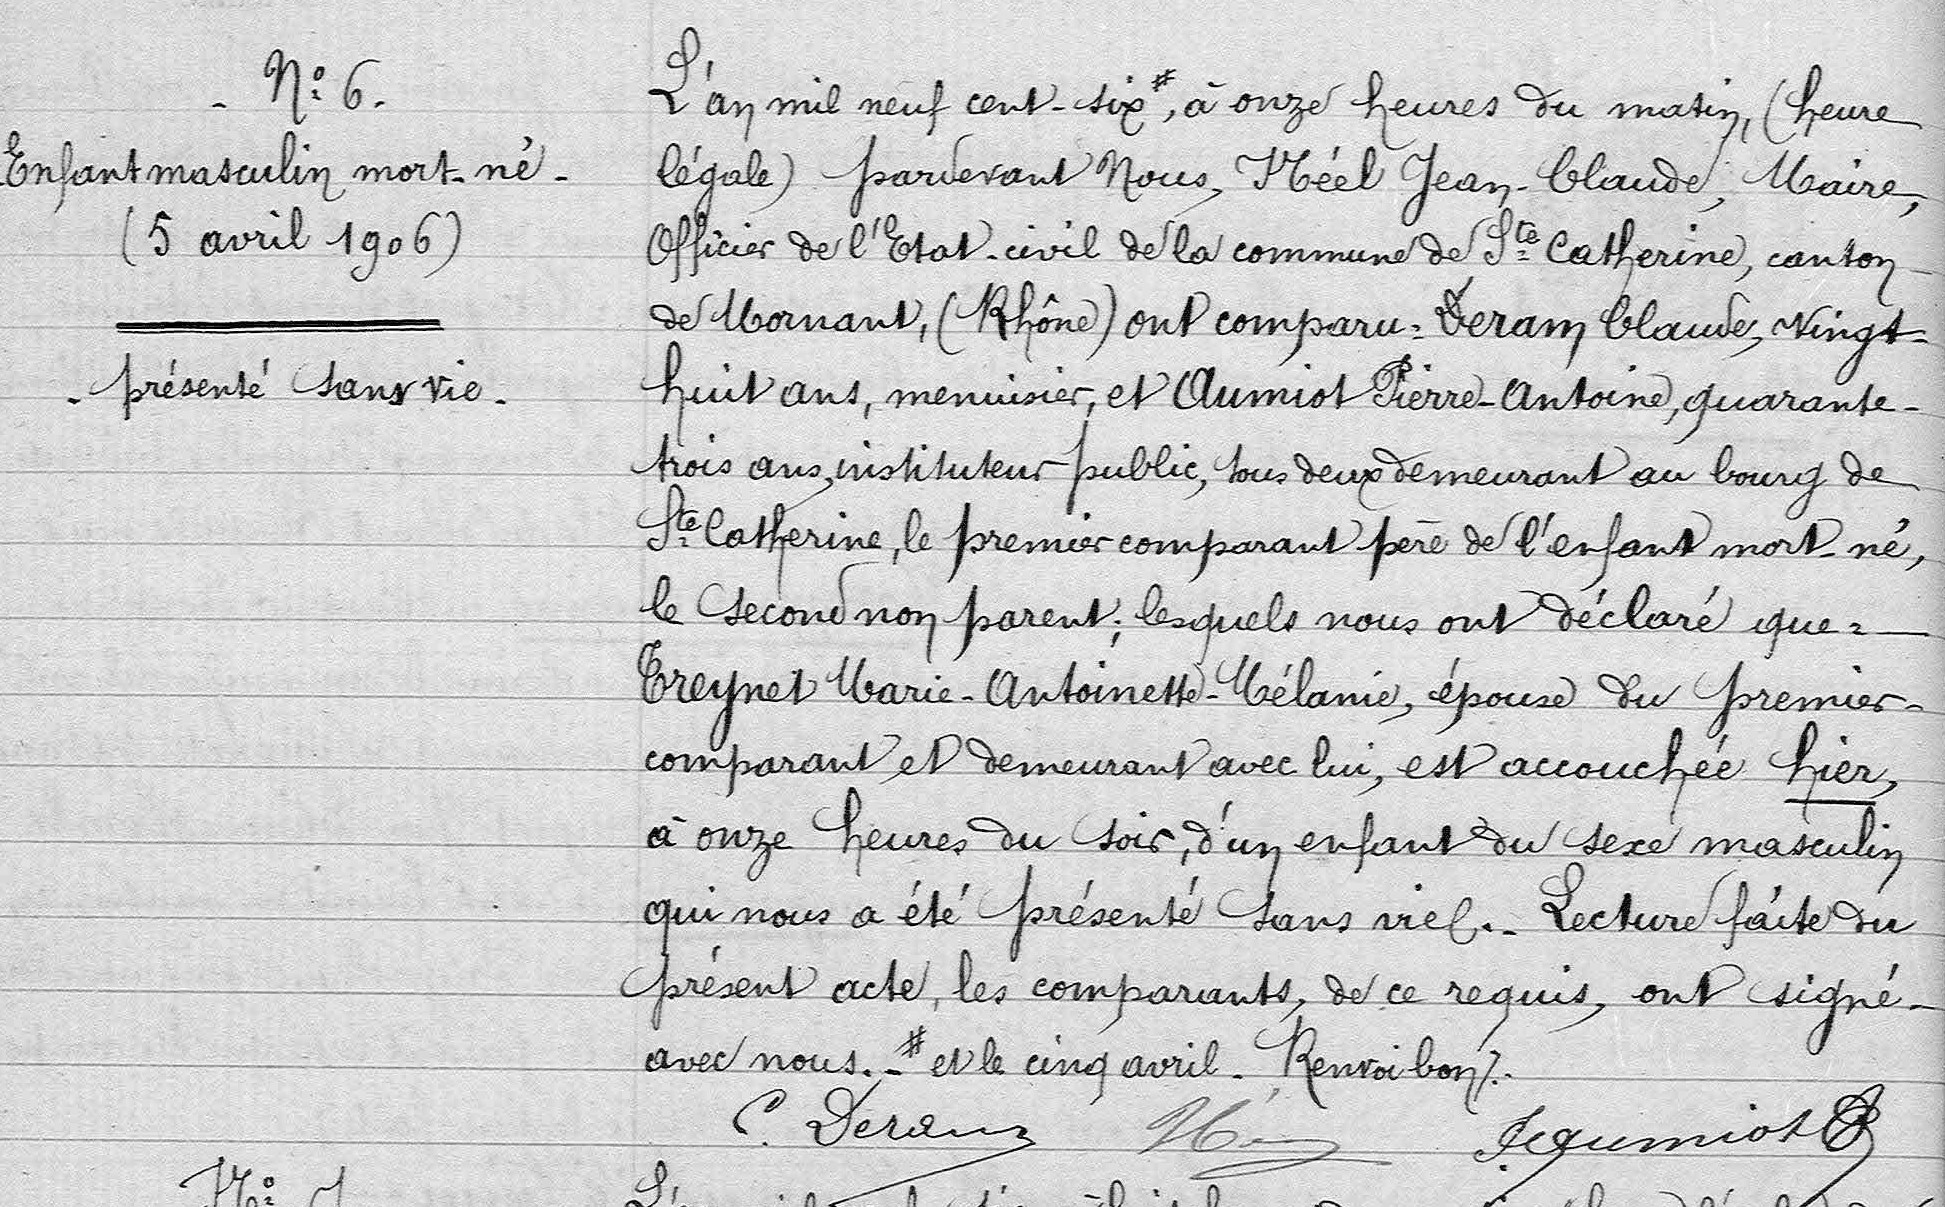 - N° 6.
Enfant masculin mort-né -
(5 avril 1906)
- présenté sans vie -
L'an mil neuf cent-six#, à onze heures du matin, (heure
légale) pardevant Nous, Méel Jean-Claude, Maire,
Officier de l'Etat-civil de la commune de Ste Catherine, canton
de Mornant, (Rhône) ont comparu: Deram Claude, vingt-
huit ans, menuisier, et Aumiot Pierre-Antoine, quarante-
trois ans, instituteur public, tous deux demeurant au bourg de
Ste Catherine, le premier comparant père de l'enfant mort-né,
le second non parent; lesquels nous ont déclaré que:
Treynet Marie-Antoinette-Mélanie, épouse du premier
comparant et demeurant avec lui, est accouchée hier,
à onze heures du soir, d'un enfant du sexe masculin
qui nous a été présenté sans vie. - Lecture faite du
présent acte, les comparants, de ce requis, ont signé
avec nous. - # et le cinq avril - Renvoi bon ./.
C. Deram
N°